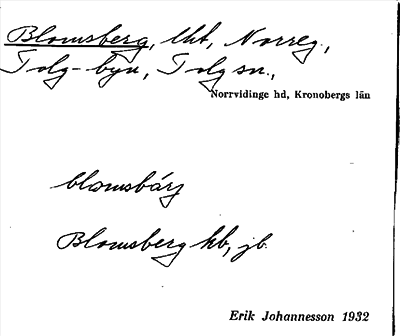 Blomsberg, lht, Norreg.,
Tolg-byn, Tolg sn.,
Norrvidinge hd, Kronobergs län
blomsbárj
Blomsberg kb, jb.
Erik Johannesson 1932